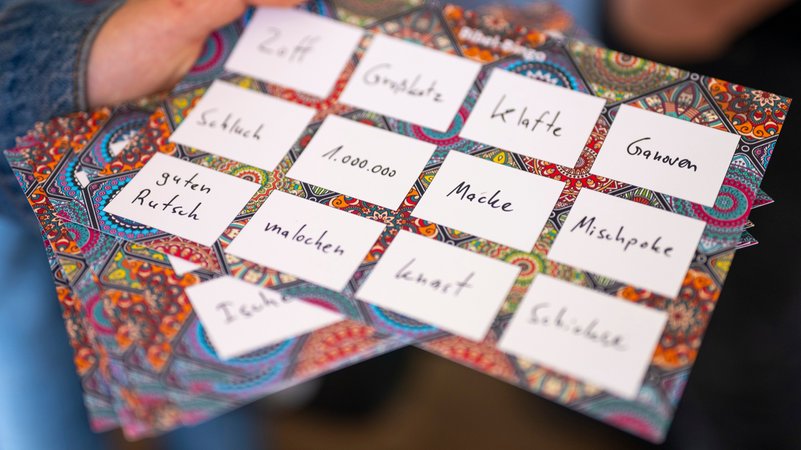 Bingo
Zoff
Großkotz
Klafte
Ganoven
Schluch
1.000.000
Macke
Mischpoke
guten
Rutsch
malochen
Knast
Ische
Schickse